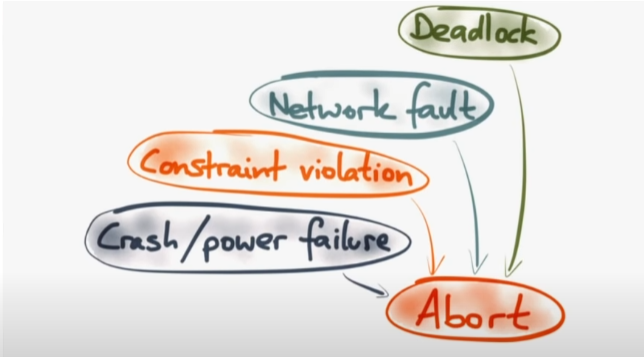 Deadlock
Network fault
Constraint violation
Crash/power failure
Abort